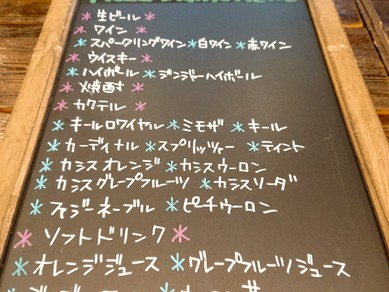 *生ビール*
*ワイン*
*スパークリングワイン*白ワイン*赤ワイン
*ウイスキー*
*ハイボール*ジンジーハイボール
*焼酎*
*カクテル*
*キールロワイヤル*ミモザ*キール
*カーディナル*スプリッツァー*ティント
*カシスオレンジ*カシスウーロン
*カシスグレープフルーツ*カシスソーダ
*ファジーネーブル*ピーチウーロン
*ソフトドリンク*
*オレンジジュース*グレープフルーツジュース